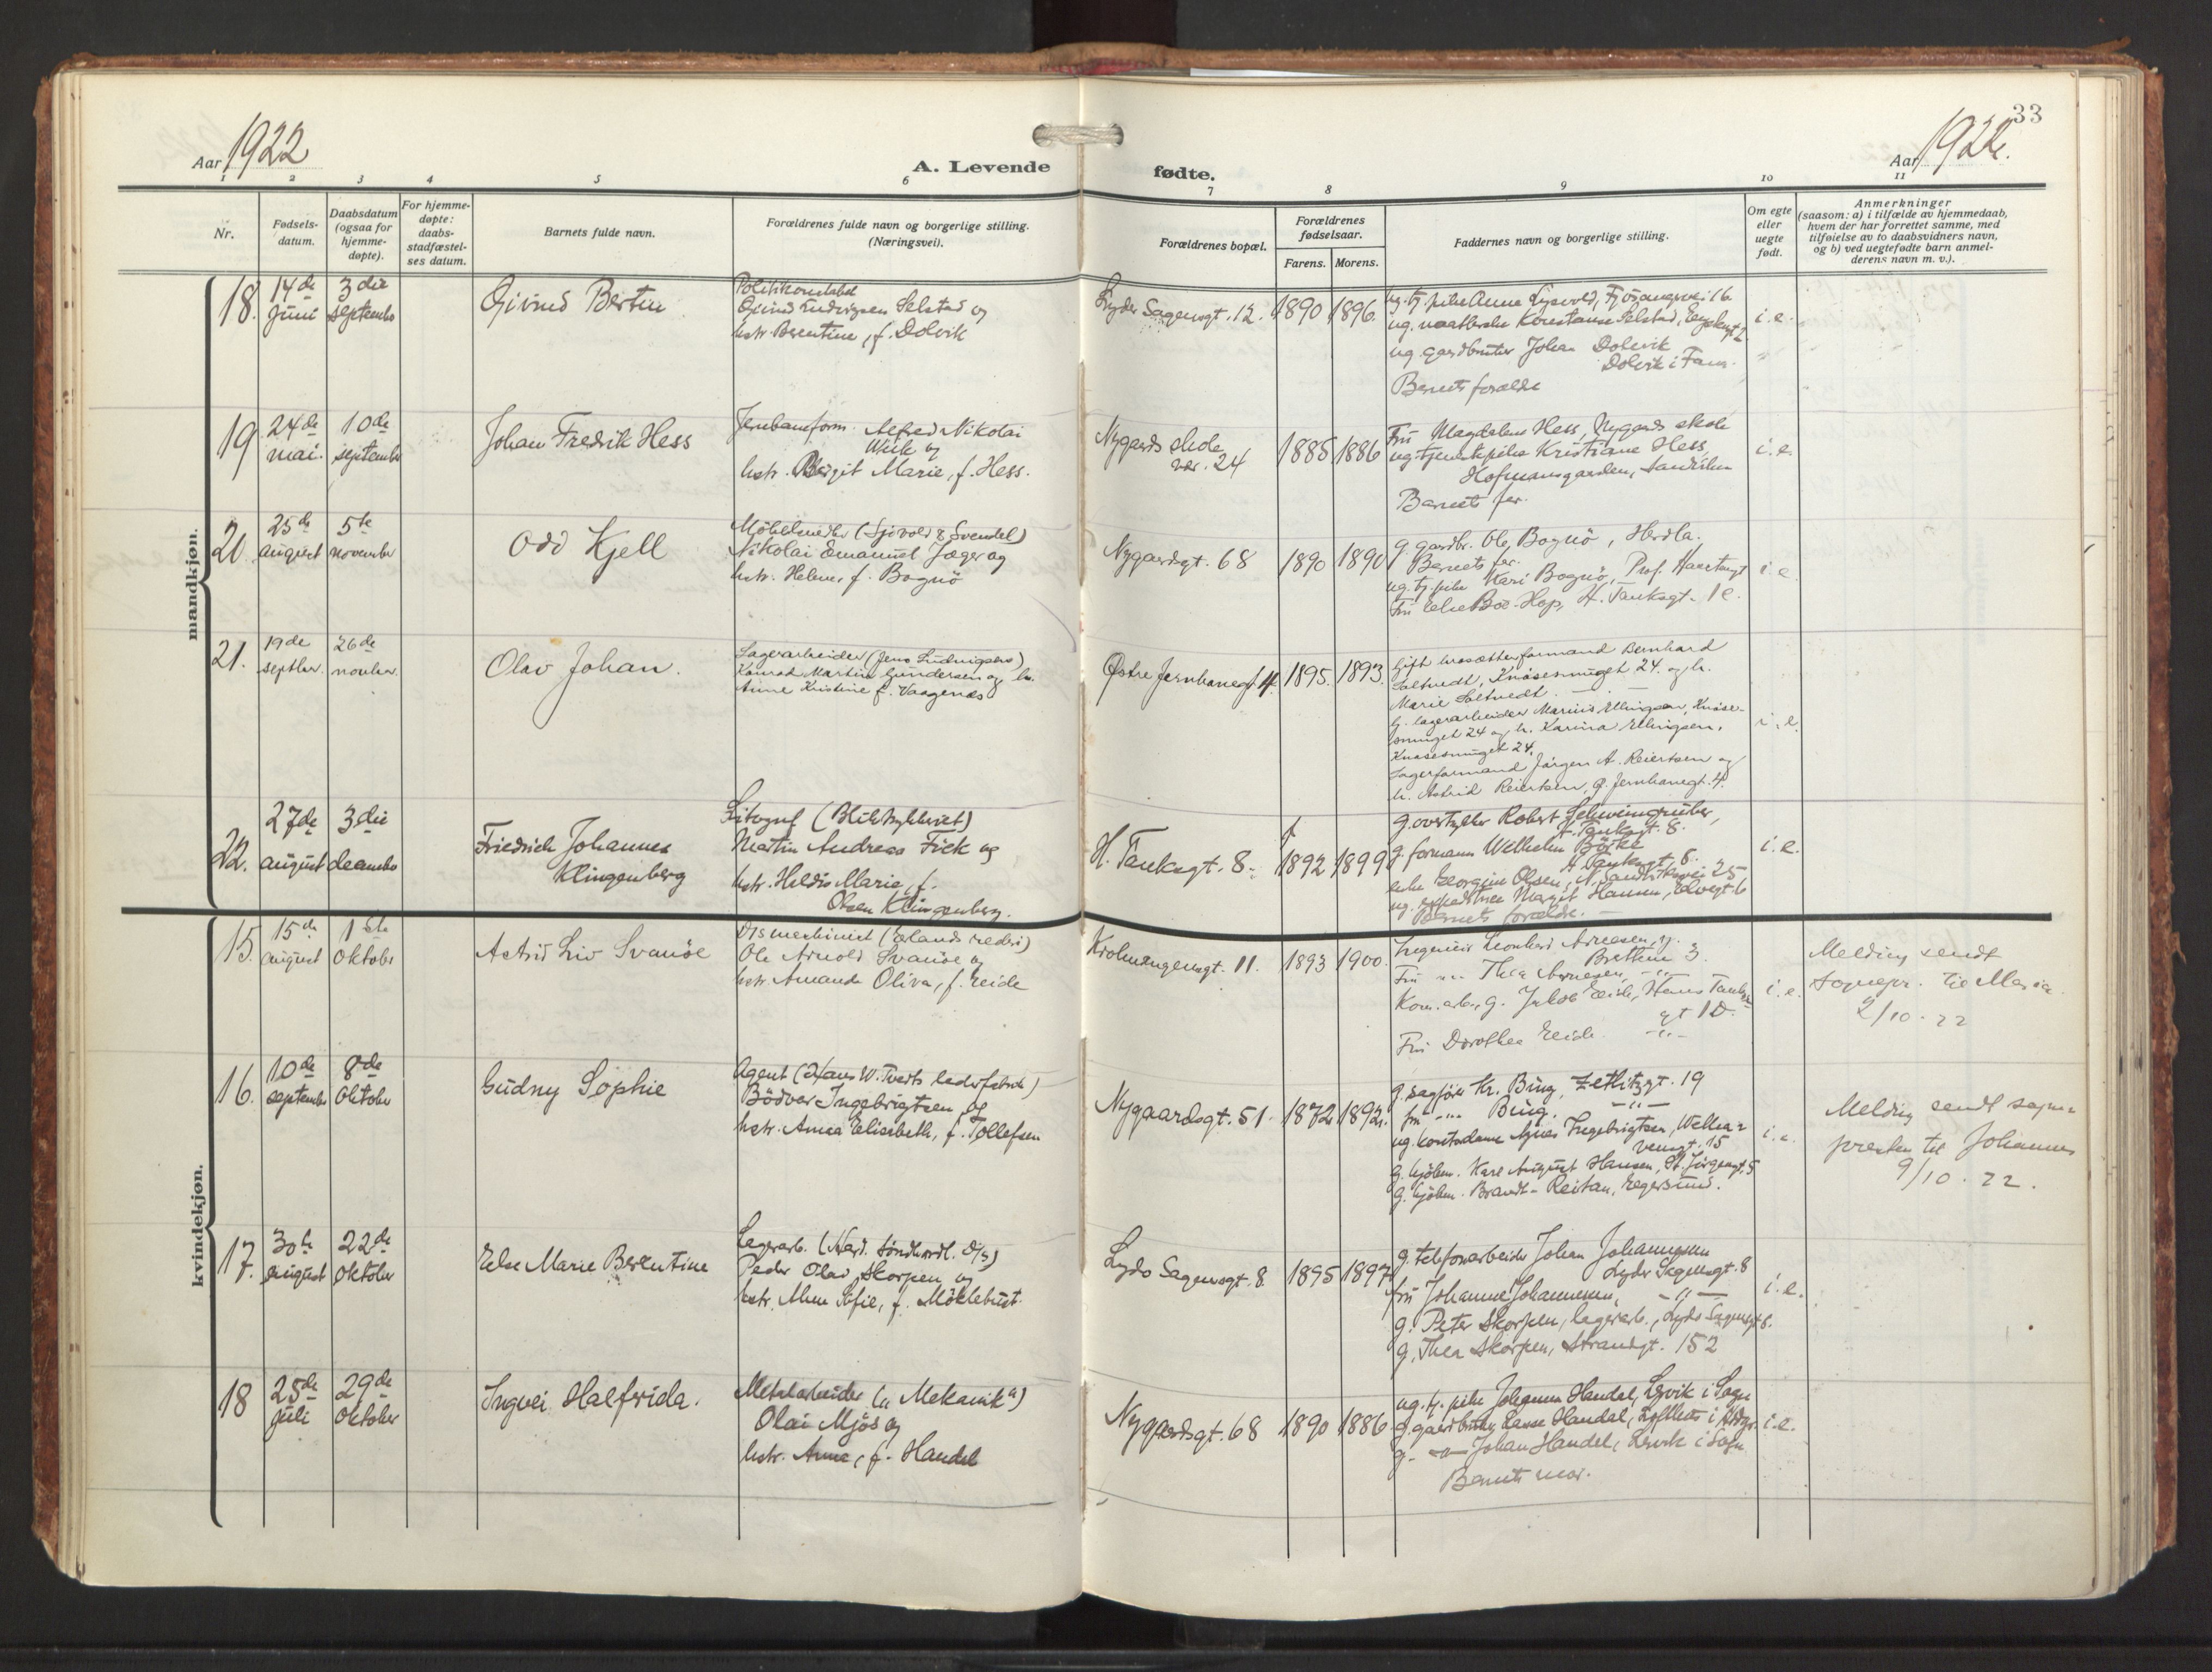 33
Aar 1922
A. Levende
fødte.
Aar 1922.
1 2 3 4 5 6 7 8 9 10 11
Nr.
Fødsels-
datum.
Daabsdatum
(ogsaa for
hjemme-
døpte).
For hjemme-
døpte:
daabs-
stadfæstel-
ses datum.
Barnets fulde navn.
Forældrenes fulde navn og borgerlige stilling.
(Næringsvei).
Forældrenes bopæl.
Forældrenes
fødselsaar.
Farens. Morens.
Faddernes navn og borgerlige stilling.
Om egte
eller
uegte
født.
Anmerkninger
(saasom: a) i tilfælde av hjemmedaab,
hvem der har forrettet samme, med
tilføielse av to daabsvidners navn,
og b) ved uegtefødte barn anmel-
derens navn m. v.).
mandkjøn.
18. 14de juni
3die september
Øivind Bertin
Politikonstabel
Øivind Ludvigsen Selstad og
hstr. Berentine, f. Dolvik
Lyder Sagensgt. 12. 1890 1896.
ug. gardbruker Johan Dolvik
Dolvik i Fana.
Barnets forældre
i.e.
19 24de mai.
10de september
Johan Fredrik Hess
Jernbaneform. Alfred Nikolai
Wiik og
hstr. Birgit Marie, f. Hess.
Nygaards skole
24
1885 1886
Fru Magdalene Hess, Nygaards skole
ug. tjenestepike Kristiane Hess,
Hofmansgaarden, Sandviken
Barnets far.
i.e.
20. 25de august
5te november
Odd Kjell
Nikolai Emanuel Jæger og
hstr. Helene, f. Bognö
Nygaardsgt. 68 1890 1890
g. gardbr. Ole Bognö, Herdla.
Barnets far.
ug. tj.pike Kari Bognö, Prof. Hanstengt
Fru Else Boe-Hop, H. Tanksgt. 1 e.
i.e.
21. 19de septbr.
26de novbr.
Olav Johan.
Lagerarbeider (Jens Ludvigsen)
Konrad Martin Gundersen og h.
Anne Kristine f. Vaagenes
Østre Jernbanegt. 4. 1895. 1893.
Gift brosætterformand Bernhard
Saltvedt, Knösesmuget 24. og h.
Marie Saltvedt.
g. lagerarbeider Marius Ellingsen, Knöse-
smuget 24 og h. Karina Ellingsen,
Knösesmuget 24.
Lagerformand Jörgen A. Reiertsen og
h. Astrid Reiertsen, Ø. Jernbanegt. 4.
i.e.
22. 27de august
3die december
Friedrich Johannes
Klingenberg
Litograf (Bliktrykkeriet)
Martin Andreas Fick og
hstr. Heldis Marie, f.
Olsen Klingenberg.
H. Tanksgt. 8. 1892 1899
g. overtrykker Robert Schweingruber,
H. Tanksgt. 8.
g. formann Wilhelm Börke
H. Tanksgt. 8.
enke Georgine Olsen, N. Sandviksvei 25
ug. Margit Hansen, Elvegt. 6
Barnets forældre.
i.e.
kvindekjøn.
15. 15de august
1ste oktober
Astrid Liv Svanöe
maskinist (Erlands rederi)
Ole Arnold Svanöe og
hstr. Amanda Oliva, f. Eide
Krohnengensgt. 11. 1893 1900.
Ingeniör Leonhard Arnesen,
Brattlien 3.
Fru Thea Arnesen, -"-
Kom. arb., g. Jakob Eide, Hans Tanks
gt 10.
Fru Dorothea Eide. -"-
i.e.
Melding sendt
sognepr. til Maria.
2/10. 22
16. 10de september
8de oktober
Gudny Sophie
Agent (Hans W. Tveits lederfabrik)
Bödvar Ingebrigtsen og
hstr. Anna Elisabeth, f. Tollefsen
Nygaardsgt. 51. 1872 1892.
g. sagförer Kr. Bing, Zetlitzgt. 19
fru -"- Bing. -"-
ug. kontordame Agnes Ingebrigtsen, Welha-
vensgt. 15
g. kjöbm. Karl August Hansen, St. Jörgensgt. 5
g. kjöbm. Brandt-Reitan, Egersund.
i.e.
Melding sendt sogne-
presten til Johannes
9/10. 22.
17. 30te august
22de oktober
Else Marie Berentine
Lagerarb. (Hard. Söndhordl. D/S)
Peder Olai Skorpen og
hstr. Sofie, f. Möklebust.
Lyder Sagensgt. 8. 1895 1897
g. telefonarbeider Johan Johannesen
Lyder Sagensgt. 8
fru Johanne Johannesen, -"-
g. Peter Skorpen, lagerarb., Lyder Sagensgt 8.
g. Thea Skorpen, Strandgt. 152
i.e.
18 25de juli
29de oktober
Ingvei Halfrida.
Metalarbeider ("Mekanik")
Olai Mjös og
hstr. Anna, f. Handal
Nygaardsgt. 68 1890 1886
ug. tj. pike Johanna Handal, Lervik i Sogn
g. gaardbruker Lasse Handal,
g. -"- Johan Handal, Lervik i Sogn
Barnets mor.
i.e.